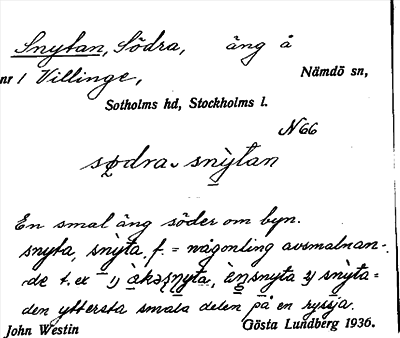 Snytan, Södra, äng å
nr 1 Villinge, Nämdö sn,
Sotholms hd, Stockholms l.
N66
sødra snỳtan
En smal äng söder om byn.
snyta, snỳta, f. = någonting avsmalnan-
de t.ex 1) àkəṣṇyta, ä̀nsnyta 2) snỳta =
den yttersta smala delen på en ryssja.
John Westin Gösta Lundberg 1936.